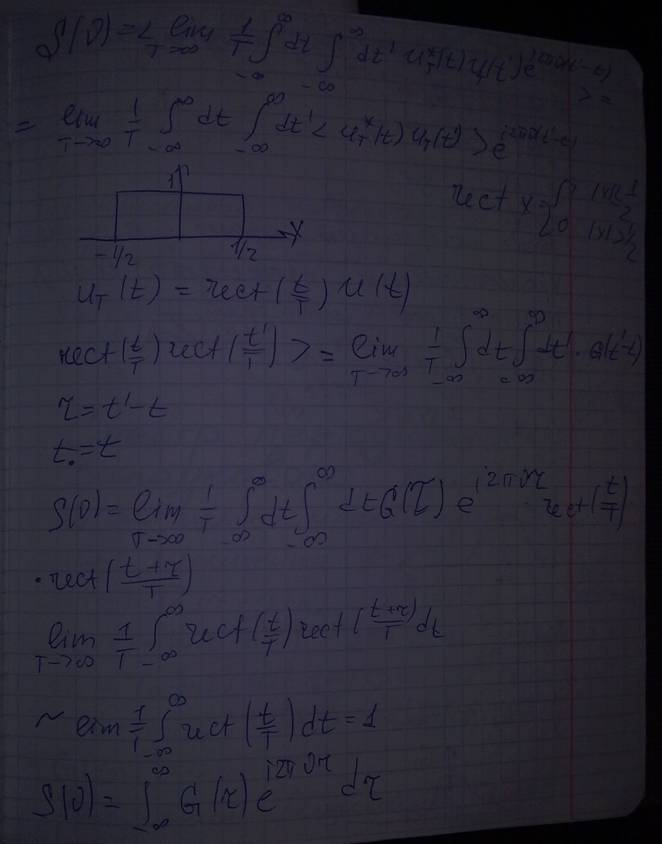 S(ν) = < lim T→∞ 1/T ∫_{-∞}^{∞} dt ∫_{-∞}^{∞} dt' u_T^*(t) u(t') e^{i2πν(t'-t)} > =
= lim T→∞ 1/T ∫_{-∞}^{∞} dt ∫_{-∞}^{∞} dt' < u_T^*(t) u_T(t') > e^{i2πν(t'-t)}
1
rect x = {
0
-1/2 1/2 x
u_T(t) = rect(t/T) u(t)
rect(t/T) rect(t'/T) > = lim T→∞ 1/T ∫_{-∞}^{∞} dt ∫_{-∞}^{∞} dt' · G(t'-t)
τ = t' - t
t = t
S(ν) = lim T→∞ 1/T ∫_{-∞}^{∞} dt ∫_{-∞}^{∞} dτ G(τ) e^{i2πντ} · rect(t/T)
· rect((t+τ)/T)
lim T→∞ 1/T ∫_{-∞}^{∞} rect(t/T) rect((t+τ)/T) dt
~ lim 1/T ∫_{-∞}^{∞} rect(t/T) dt = 1
S(ν) = ∫_{-∞}^{∞} G(τ) e^{i2πντ} dτ